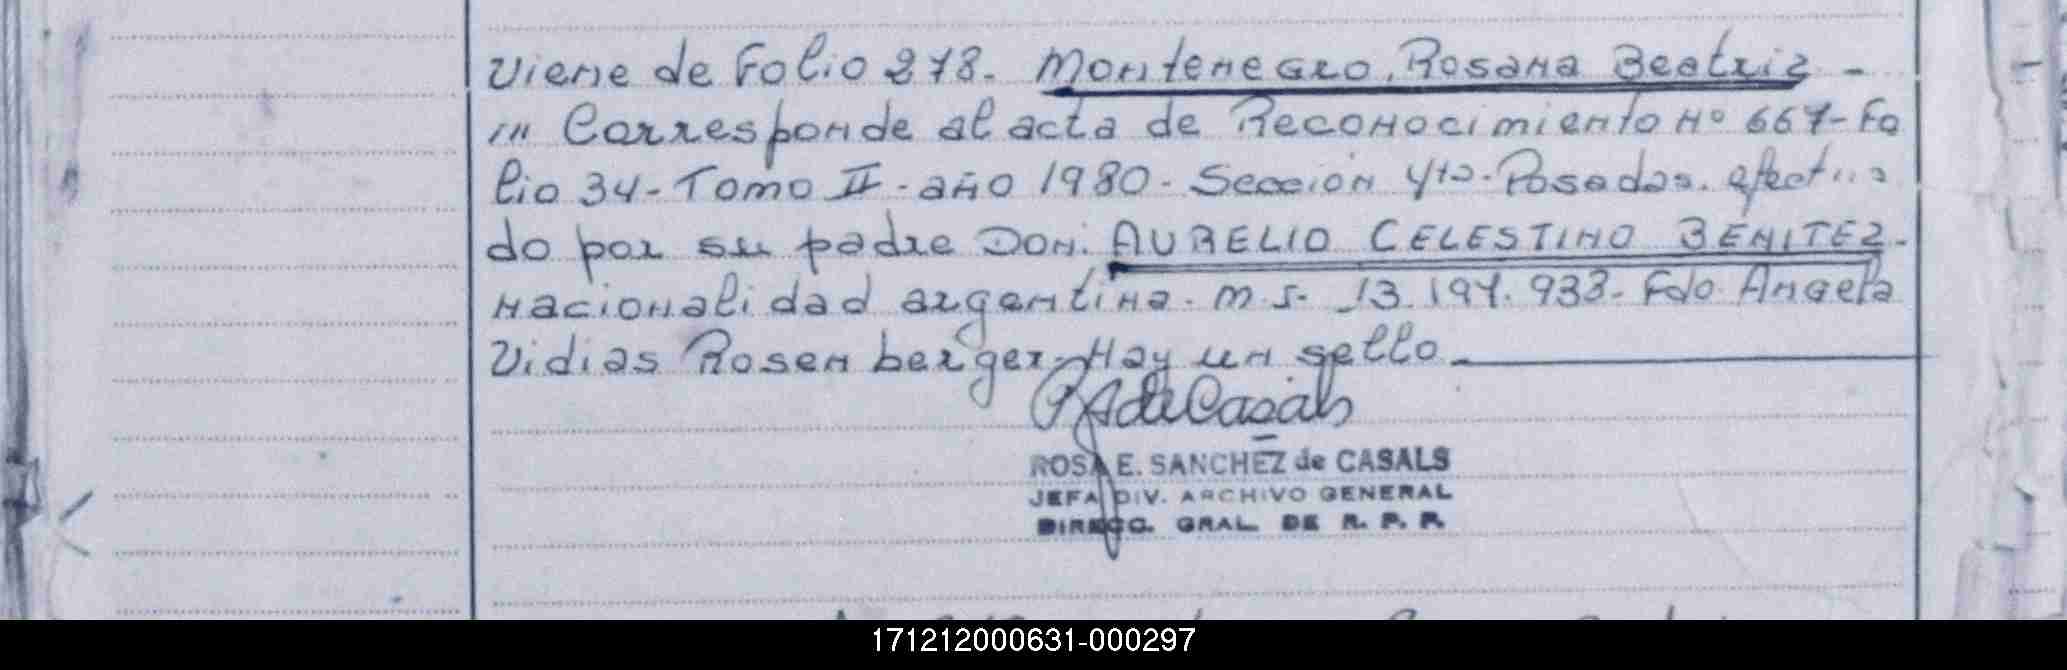 Viene de Folio 278. Montenegro, Rosana Beatriz -
/// Corresponde al acta de Reconocimiento Nº 667- Fo
lio 34- Tomo II - año 1980 - Sección 4ta- Posadas. efectua
do por su padre Don. AURELIO CELESTINO BENITEZ -
nacionalidad argentina. M.I. 13.197.933- Fdo Angela
Vidias Rosenberger- Hay un sello
R S de Casals
ROSA E. SANCHEZ de CASALS
JEFA DIV. ARCHIVO GENERAL
DIRECC. GRAL. DE R. P. P.
171212000631-000297